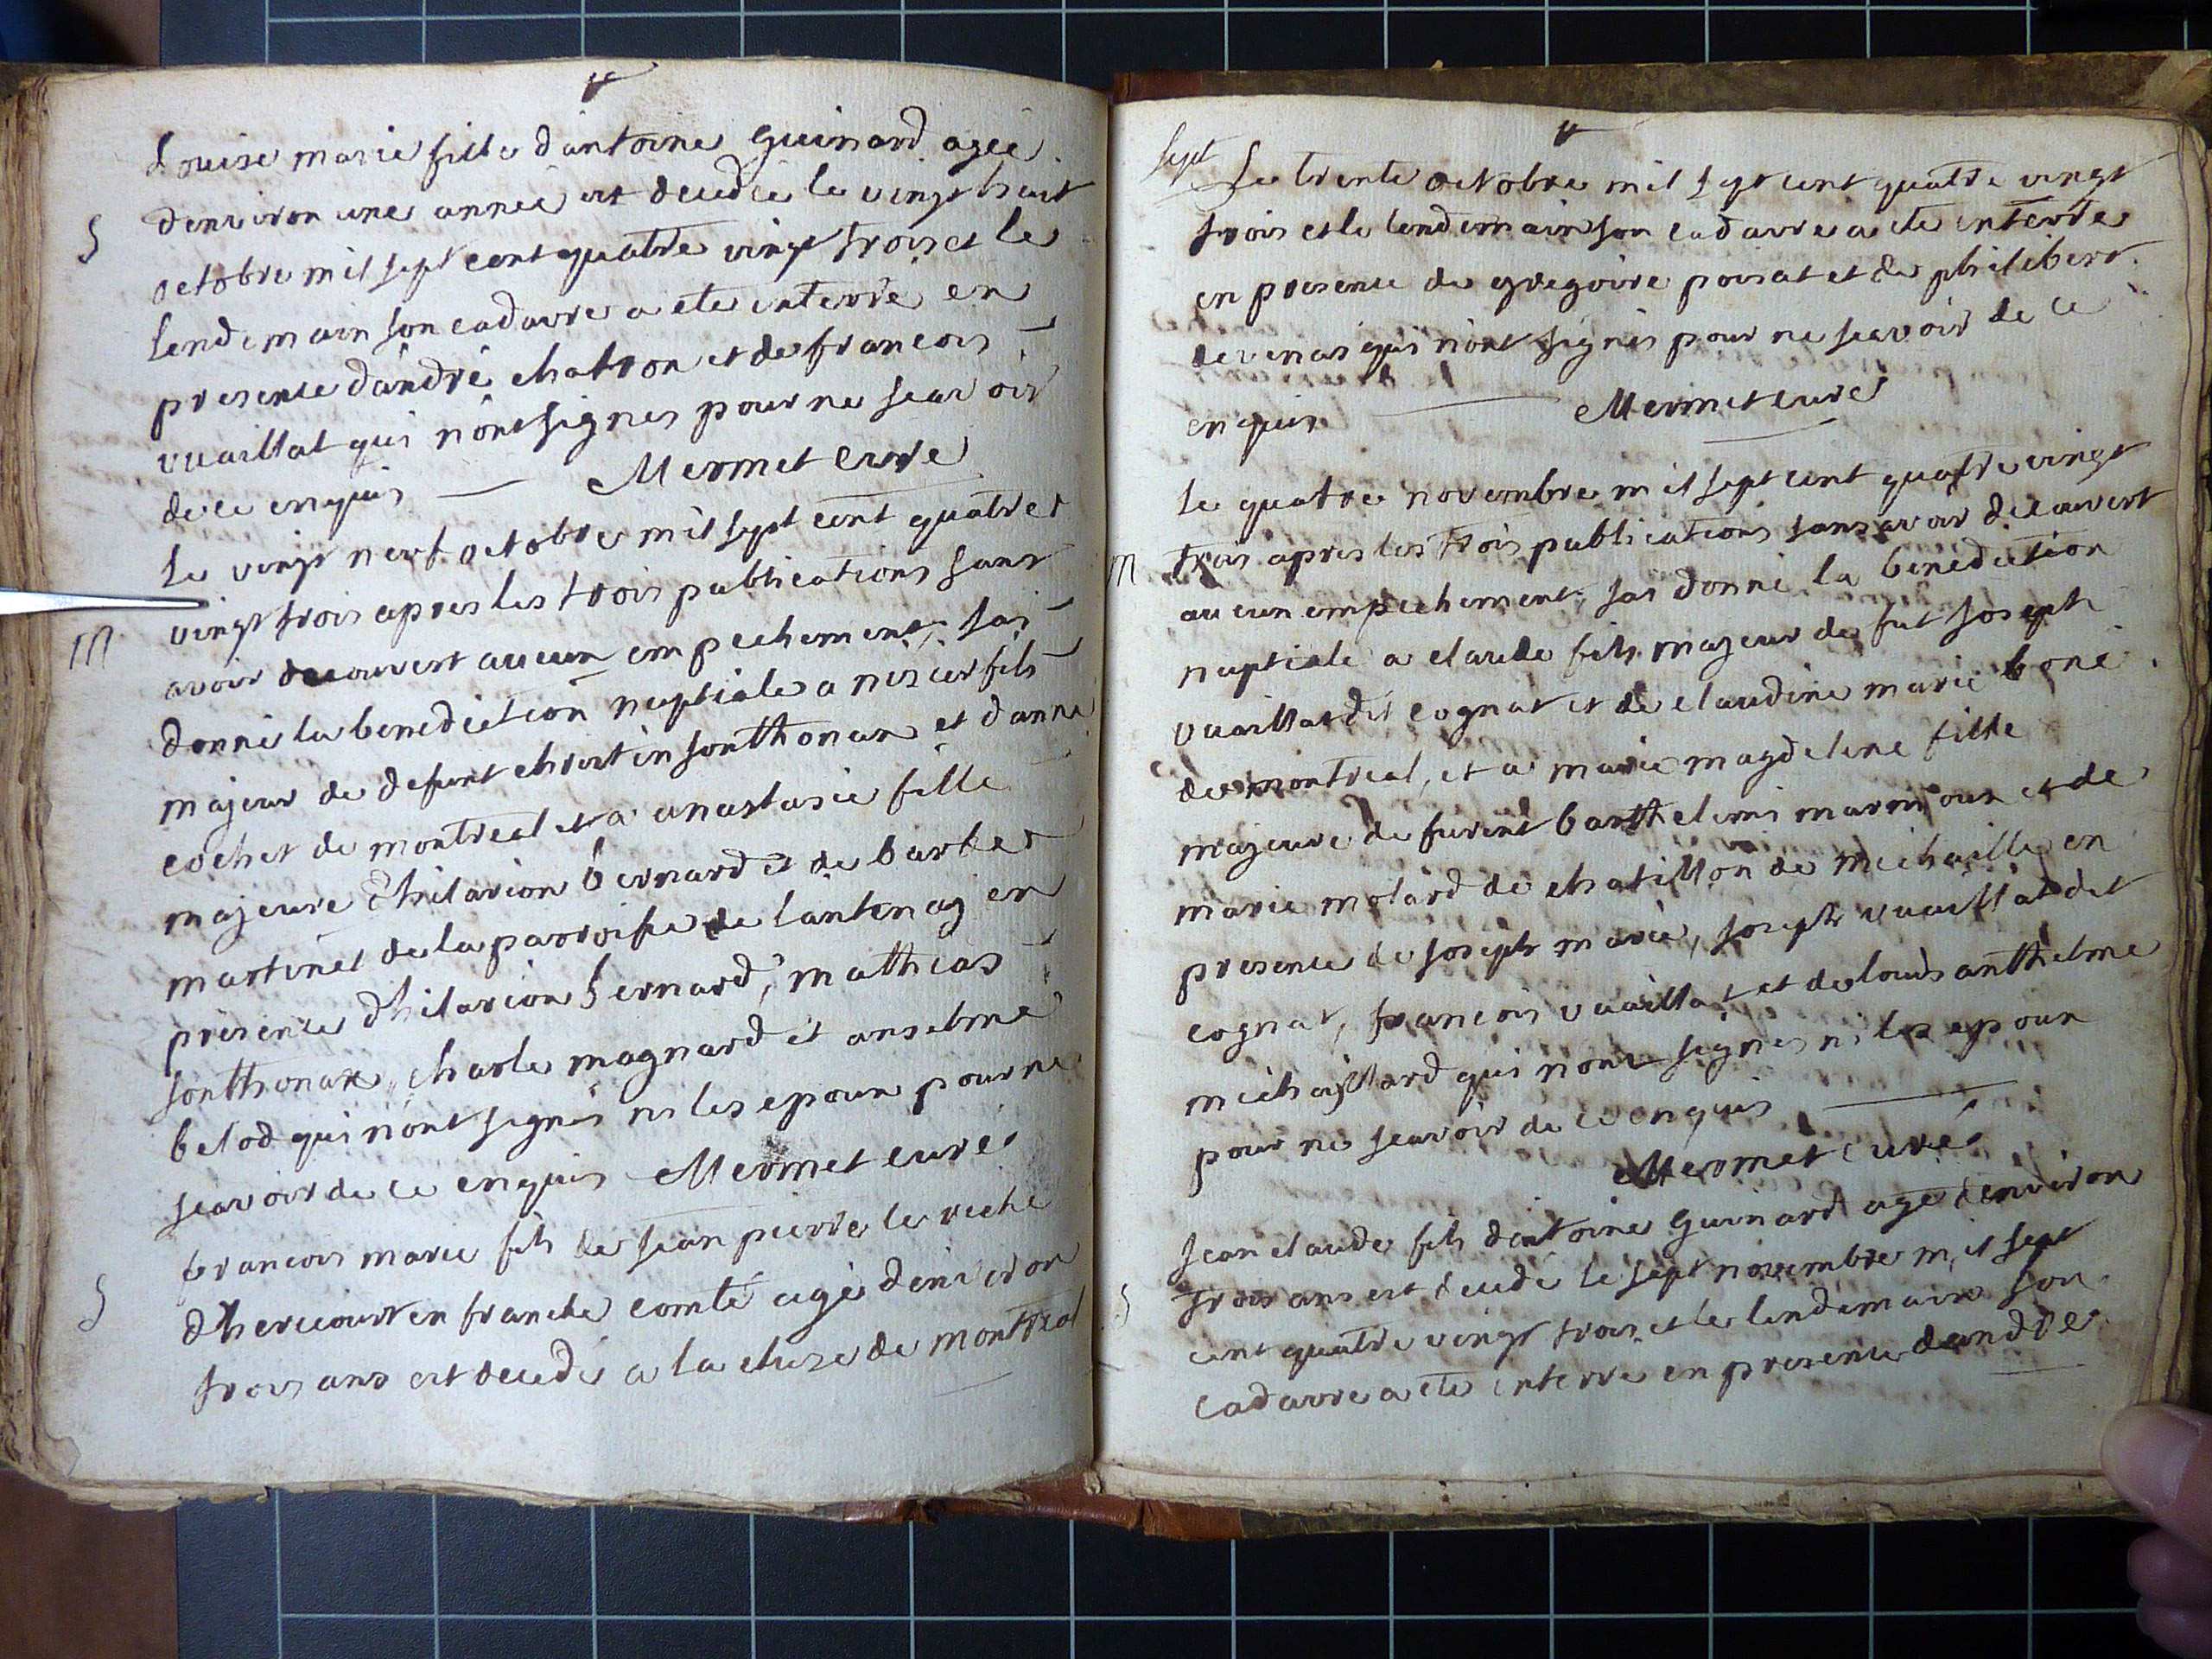 Louise marie fille dantoine Guinard agée
S denviron une année est decedée le vingt huit
octobre mil sept cent quatre vingt trois et le
lendemain son cadavre a ete enterré en
presence dandré chatron et de francois
vuaillat qui nont signés pour ne scavoir
de ce enquis Mermet curé
Le vingt neuf octobre mil sept cent quatre
vingt trois apres les trois publications sans
M avoir decouvert aucun empechement, jai
donné la benediction nuptiale a nizier fils
majeur de defunt christin sonthonax et danne
cochet de montreal et a anastasie fille
majeure dhilarion bernard et de barbe
martinet de la parroisse de lantenay en
presence dhilarion bernard, mathias
sonthonax, charle magnard et anselme
belod qui nont signés ni les epoux pour ne
scavoir de ce enquis Mermet curé
francois marie fils de jean pierre le riche
S dhericourt en franche comté agé denviron
trois ans est decedé a la cluse de montreal
Sept Le trente octobre mil sept cent quatre vingt
trois et le lendemain son cadavre a ete enterré
en presence de gregoire poisat et de philibert
devenas qui nont signés pour ne scavoir de ce
enquis Mermet curé
Le quatre novembre mil sept cent quatre vingt
M trois apres les trois publications sans avoir decouvert
aucun empechement, jai donné la benediction
nuptiale a claude fils majeur de fut joseph
vuaillat dit cognat et de claudine marie boné
de montreal, et a marie magdelene fille
majeure de furent barthelemi marmoux et de
marie molard de chatillon de michaille en
presence de joseph marie, joseph vuaillat dit
cognat, francois vuaillat et de louis anthelme
michaillard qui nont signés ni les epoux
pour ne scavoir de ce enquis
Mermet curé
Jean claude fils dantoine Guinard agé denviron
S trois ans est decedé le sept novembre mil sept
cent quatre vingt trois et le lendemain son
cadavre a ete enterré en presence dandré